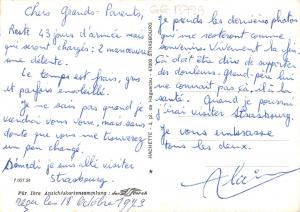 Chers Grands-Parents,
Reste 43 jours d'armée mais
qui seront chargés : 2 manoeuvres
une détente.
Le temps est frais, gris
et parfois ensoleillé.
Je ne sais pas quand je
viendrai vous voir, mais
sans doute que vous me trouverez
un peu changé.
Samedi je suis allé visiter
Strasbourg.
Für Ihre Ansichtskartensammlung :
reçu le 18 Octobre 1973
HACHETTE - 3, pl. de Haguenau - 67000 STRASBOURG
Je prends les dernières photos
qui me resteront comme
souvenirs. Vivement la fin
Ça doit être dur de supporter
des douleurs. Grand-père lui
ne connait pas ça, il a la
santé. Quand je pourrai
j'irai visiter Strasbourg.
Je vous embrasse
tous les deux.
Alain